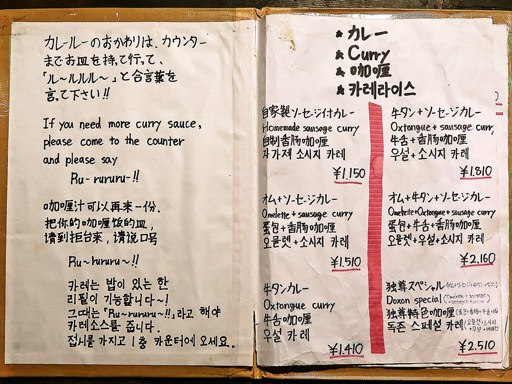 カレールーのおかわりは、カウンター
までお皿を持って行って、
「ル〜ルルル〜」と合言葉を
言って下さい!!
If you need more curry sauce,
please come to the counter
and please say
Ru-rururu-!!
咖喱汁可以再来一份.
把你的咖喱饭的皿,
请到拒台来,请说口号
Ru~rururu~!!
카레는 밥이 있는 한
리필이 가능합니다~!
그때는 "Ru~rururu~!!"라고 해야
카레소스를 줍니다.
접시를 가지고 1층 카운터에 오세요.
* カレー
* Curry
* 咖喱
* 카레라이스
自家製ソーセージカレー
Homemade sausage curry
自制香肠咖喱
자가제 소시지 카레
¥1.150
牛タン+ソーセージカレー
Oxtongue + sausage curry
牛舌+香肠咖喱
우설+소시지 카레
¥1.810
オム+ソーセージカレー
Omelette + sausage curry
蛋包+香肠咖喱
오믈렛+소시지 카레
¥1.510
オム+牛タン+ソーセージカレー
Omelette+Oxtongue+sausage curry
蛋包+牛舌+香肠咖喱
오믈렛+우설+소시지 카레
¥2.160
牛タンカレー
Oxtongue curry
牛舌咖喱
우설 카레
¥1.410
独尊スペシャル
Doxon special
独尊特色咖喱
독존 스페셜 카레
¥2.510